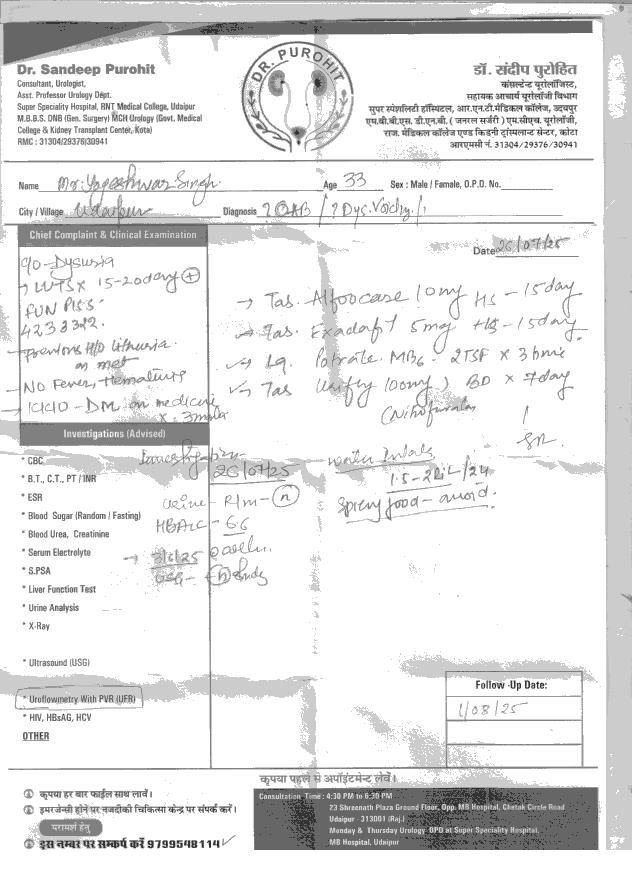 DR. PUROHIT
Dr. Sandeep Purohit
Consultant, Urologist,
Asst. Professor Urology Dept.
Super Speciality Hospital, RNT Medical College, Udaipur
M.B.B.S. DNB (Gen. Surgery) MCH Urology (Govt. Medical
College & Kidney Transplant Center, Kota)
RMC : 31304/29376/30941
डॉ. संदीप पुरोहित
कंसल्टेन्ट यूरोलॉजिस्ट,
सहायक आचार्य यूरोलॉजी विभाग
सुपर स्पेशलिटी हॉस्पिटल, आर.एन.टी.मेडिकल कॉलेज, उदयपुर
एम.बी.बी.एस. डी.एन.बी. ( जनरल सर्जरी ) एम.सीएच. यूरोलॉजी,
राज. मेडिकल कॉलेज एण्ड किडनी ट्रांसप्लान्ट सेन्टर, कोटा
आरएमसी नं. 31304/29376/30941
Name Mr. Yogeshwar Singh Age 33 Sex : Male / Famale, O.P.D. No.
City / Village Udaipur Diagnosis ? OAB / ?
Chief Complaint & Clinical Examination
Date 26/07/25
c/o - Dysuria
→ LUTS x 15-20 day +
FUN PISS -
4233322.
- Previous H/O Lithuria
on met
- NO Fever, Hematuria
- K/C/O - DM on medicine
x 3
→ Tab. 10mg HS - 15 day
→ Tab. 5mg HS - 15 day
→ Lq. MB6 - 2TSF x 3
→ Tab 100mg ) BD x 7 day
Investigations (Advised)
26/07/25
Urine - R/m - n
HBA1C - 6.6
USG - n study
water intake
1.5 - 2 Lit / 24
Spicy food - avoid.
* CBC
* B.T., C.T., PT / INR
* ESR
* Blood Sugar (Random / Fasting)
* Blood Urea, Creatinine
* Serum Electrolyte
* S.PSA
* Liver Function Test
* Urine Analysis
* X-Ray
* Ultrasound (USG)
* Uroflowmetry With PVR (UFR)
* HIV, HBsAG, HCV
OTHER
Follow -Up Date:
1/08/25
कृपया पहले से अपॉइंटमेन्ट लेवें।
① कृपया हर बार फाईल साथ लावें।
② इमरजेन्सी होने पर नजदीकी चिकित्सा केन्द्र पर संपर्क करें।
परामर्श हेतु
इस नम्बर पर सम्पर्क करें 9799548114
Consultation Time : 4:30 PM to 6:30 PM
23 Shreenath Plaza Ground Floor, Opp. MB Hospital, Chetak Circle Road
Udaipur - 313001 (Raj.)
Monday & Thursday Urology OPD at Super Speciality Hospital,
MB Hospital, Udaipur